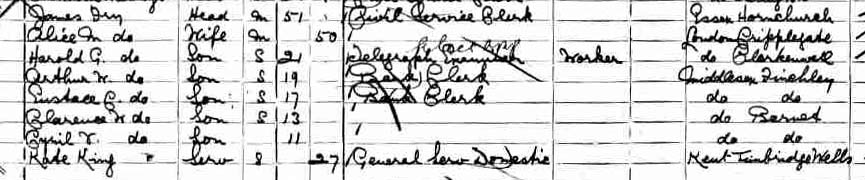 James Dry Head M 51 Civil Service Clerk Essex Hornchurch
Alice M do Wife M 50 London Cripplegate
Harold G. do Son S 21 Telegraph Worker do Clerkenwell
Arthur W. do Son S 19 Bank Clerk Middlesex Finchley
Eustace C. do Son S 17 Bank Clerk do do
Clarence W do Son S 13 do Barnet
Cyril V. do Son 11 do do
Kate King Serv S 27 General Serv Domestic Kent Tunbridge Wells